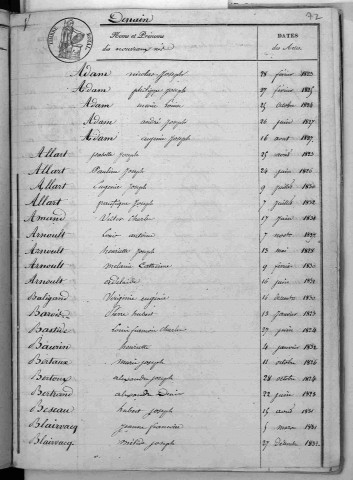 Denain
42
Noms et Prénoms
des nouveaux nés
DATES
des Actes
Adam nicolas Joseph 28 février 1823
Adam philippe Joseph 27 février 1825
Adam marie Louise 25 octobre 1824
Adam andré Joseph 26 juin 1827
Adam augustin Joseph 16 aout 1827
Allart Joseph 25 avril 1823
Allart Pauline Joseph 24 juin 1826
Allart Eugenie Joseph 9 juillet 1830
Allart pacifique Joseph 7 juillet 1832
Amand Victor Charles 17 juin 1824
Arnoult Louis antoine 7
Arnoult henriette Joseph 13 mai 1828
Arnoult melanie Catherine 9 février
Arnoult adelaïde 16 juin 1831
Baligand Virginie eugénie 16 1831
Pierre hubert 13 Janvier 1823
Bastide Louis francois Charles 27 juin 1824
Bauvin henriette 4 janvier 1832
Bertaux Marie Joseph 11 octobre 1824
Bertoux alexandre Joseph 28 octobre 1824
Bertrand alexandre 22 juin 1823
Beseau hubert Joseph 15 avril 1831
Blairvacq francoise 5 mars 1831
Blairvacq Joseph 27 Décembre 1831